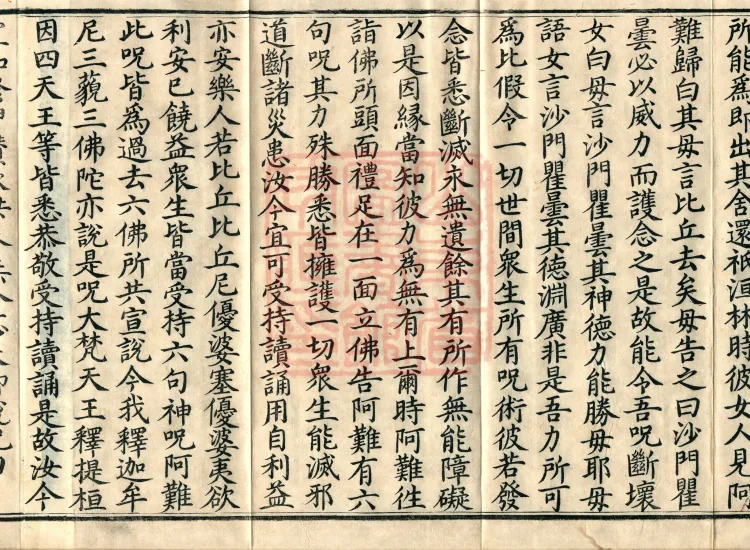 所能爲即出其舍還祇洹林時彼女人見阿
難歸白其母言比丘去矣母告之曰沙門瞿
曇必以威力而護念之是故能令吾呪斷壞
女白母言沙門瞿曇其神德力能勝母耶母
語女言沙門瞿曇其德淵廣非是吾力所可
爲比假令一切世間衆生所有呪術彼若發
念皆悉斷滅永無遺餘其有所作無能障礙
以是因緣當知彼力爲無有上爾時阿難往
詣佛所頭面禮足在一面立佛告阿難有六
句呪其力殊勝悉皆擁護一切衆生能滅邪
道斷諸災患汝今宜可受持讀誦用自利益
亦安樂人若比丘比丘尼優婆塞優婆夷欲
利安已饒益衆生皆當受持六句神呪阿難
此呪皆爲過去六佛所共宣說今我釋迦牟
尼三藐三佛陀亦說是呪大梵天王釋提桓
因四天王等皆悉恭敬受持讀誦是故汝今